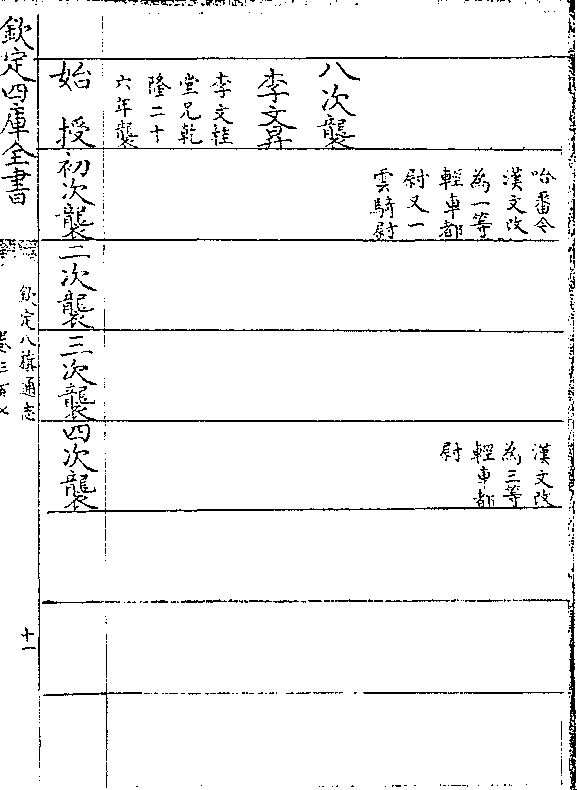 哈番今
漢文改
為一等
輕車都
尉又一
雲騎尉
漢文改
為三等
輕車都
尉
八次襲
李文昇
李文桂
堂兄乾
隆二十
六年襲
始授
初次襲
二次襲
三次襲
四次襲
欽定四庫全書
欽定八旗通志
十一